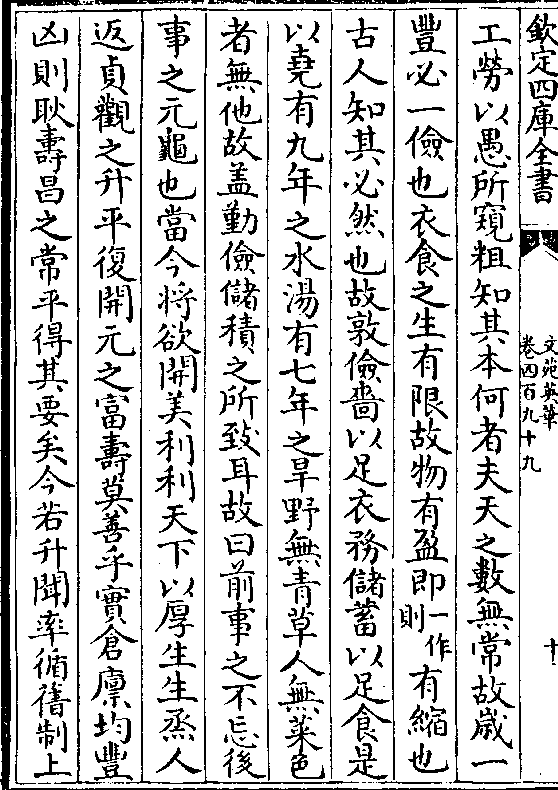 欽定四庫全書
文苑英華
卷四百九十九
十
工勞以愚所窺粗知其本何者夫天之數無常故歲一
豐必一儉也衣食之生有限故物有盈即一作則有縮也
古人知其必然也故敦儉嗇以足衣務儲蓄以足食是
以堯有九年之水湯有七年之旱野無青草人無菜色
者無他故盖勤儉儲積之所致耳故曰前事之不忘後
事之元龜也當今將欲開美利利天下以厚生生烝人
返貞觀之升平復開元之富壽莫善乎實倉廪均豐
凶則耿壽昌之常平得其要矣今若升聞率循舊制上